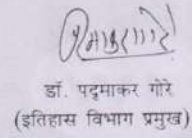 डॉ. पद्माकर गोरे
(इतिहास विभाग प्रमुख)